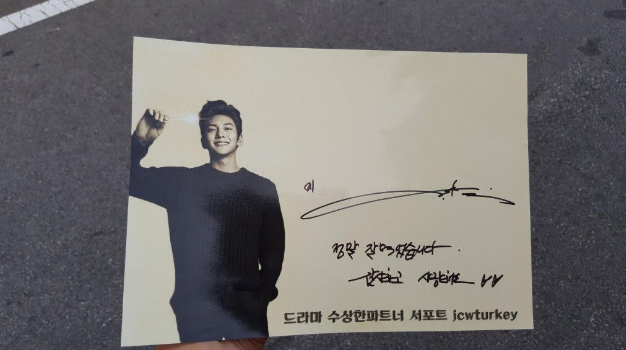 정말 잘먹었습니다.
감사하고 사랑해요 ㅠㅠ
드라마 수상한파트너 서포트 jcwturkey